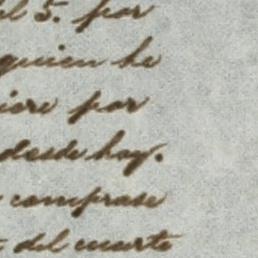 el 5. por
quien he
iere por
desde hoy.
comprase
del cuarto